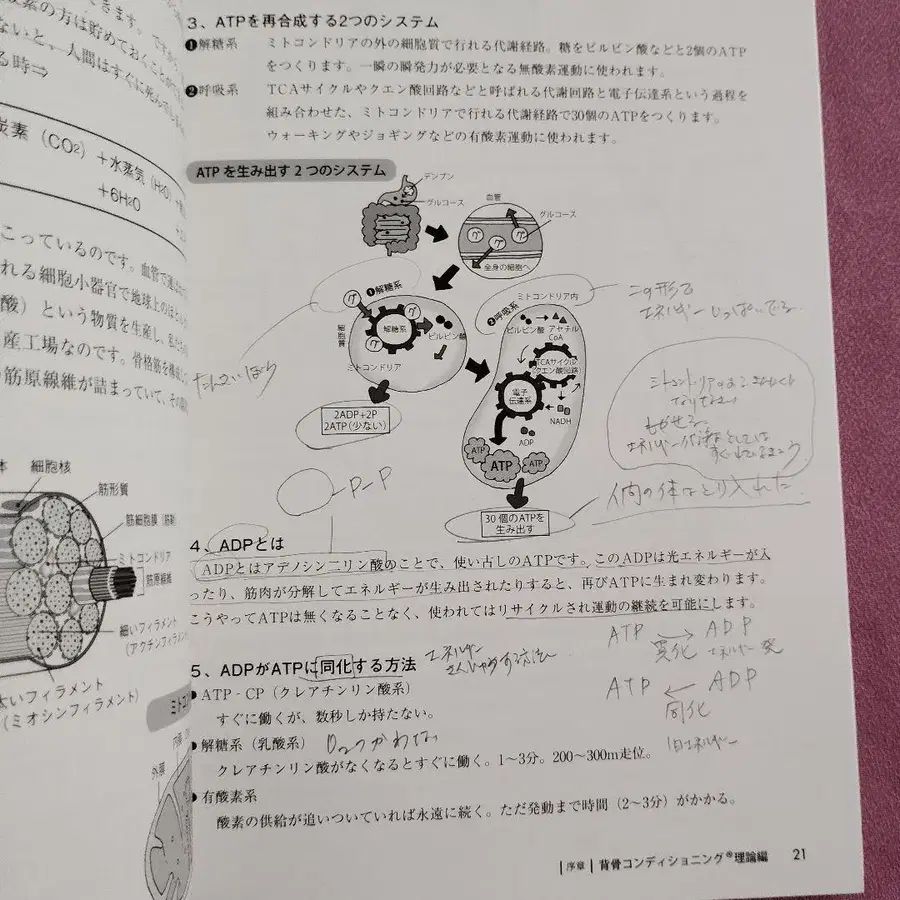 きます。
素の方は貯めておくことができ
ないと、人間はすぐに死んで
る時⇒
炭素(CO2)+水蒸気(H2O)
+6H2O
こっているのです。血管で
れる細胞小器官で地球上のほと
酸)という物質を生産し、私た
産工場なのです。骨格筋を構成
筋原線維が詰まっていて、その
体 細胞核
筋形質
筋細胞膜(筋鞘)
ミトコンドリア
筋原線維
細いフィラメント
(アクチンフィラメント)
太いフィラメント
(ミオシンフィラメント)
ミト
内膜
外膜
3、ATPを再合成する2つのシステム
❶解糖系 ミトコンドリアの外の細胞質で行れる代謝経路。糖をピルビン酸などと2個のATP
をつくります。一瞬の瞬発力が必要となる無酸素運動に使われます。
❷呼吸系 TCAサイクルやクエン酸回路などと呼ばれる代謝回路と電子伝達系という過程を
組み合わせた、ミトコンドリアで行れる代謝経路で30個のATPをつくります。
ウォーキングやジョギングなどの有酸素運動に使われます。
ATPを生み出す2つのシステム
デンプン
グルコース
血管
グルコース
グ グ グ
全身の細胞へ
❶解糖系
グ
細胞質
解糖系
グ
グ
ピルビン酸
ミトコンドリア
2ADP+2P
2ATP(少ない)
ミトコンドリア内
❷呼吸系
ピルビン酸 アセチル
CoA
TCAサイクル
クエン酸回路
電子
伝達系
NADH
ADP
ATP
ATP
ATP
30個のATPを
生み出す
この形で
エネルギーいっぱいでる
P-P
4、ADPとは
ADPとはアデノシン二リン酸のことで、使い古しのATPです。このADPは光エネルギーが入
ったり、筋肉が分解してエネルギーが生み出されたりすると、再びATPに生まれ変わります。
こうやってATPは無くなることなく、使われてはリサイクルされ運動の継続を可能にします。
ATP ADP
変化 エネルギー
ATP ← ADP
同化
5、ADPがATPに同化する方法
エネルギー
ATP‐CP(クレアチンリン酸系)
すぐに働くが、数秒しか持たない。
解糖系(乳酸系) O2つかわない
クレアチンリン酸がなくなるとすぐに働く。1～3分。200～300m走位。
有酸素系
酸素の供給が追いついていれば永遠に続く。ただ発動まで時間(2～3分)がかかる。
序章 背骨コンディショニング®理論編 21